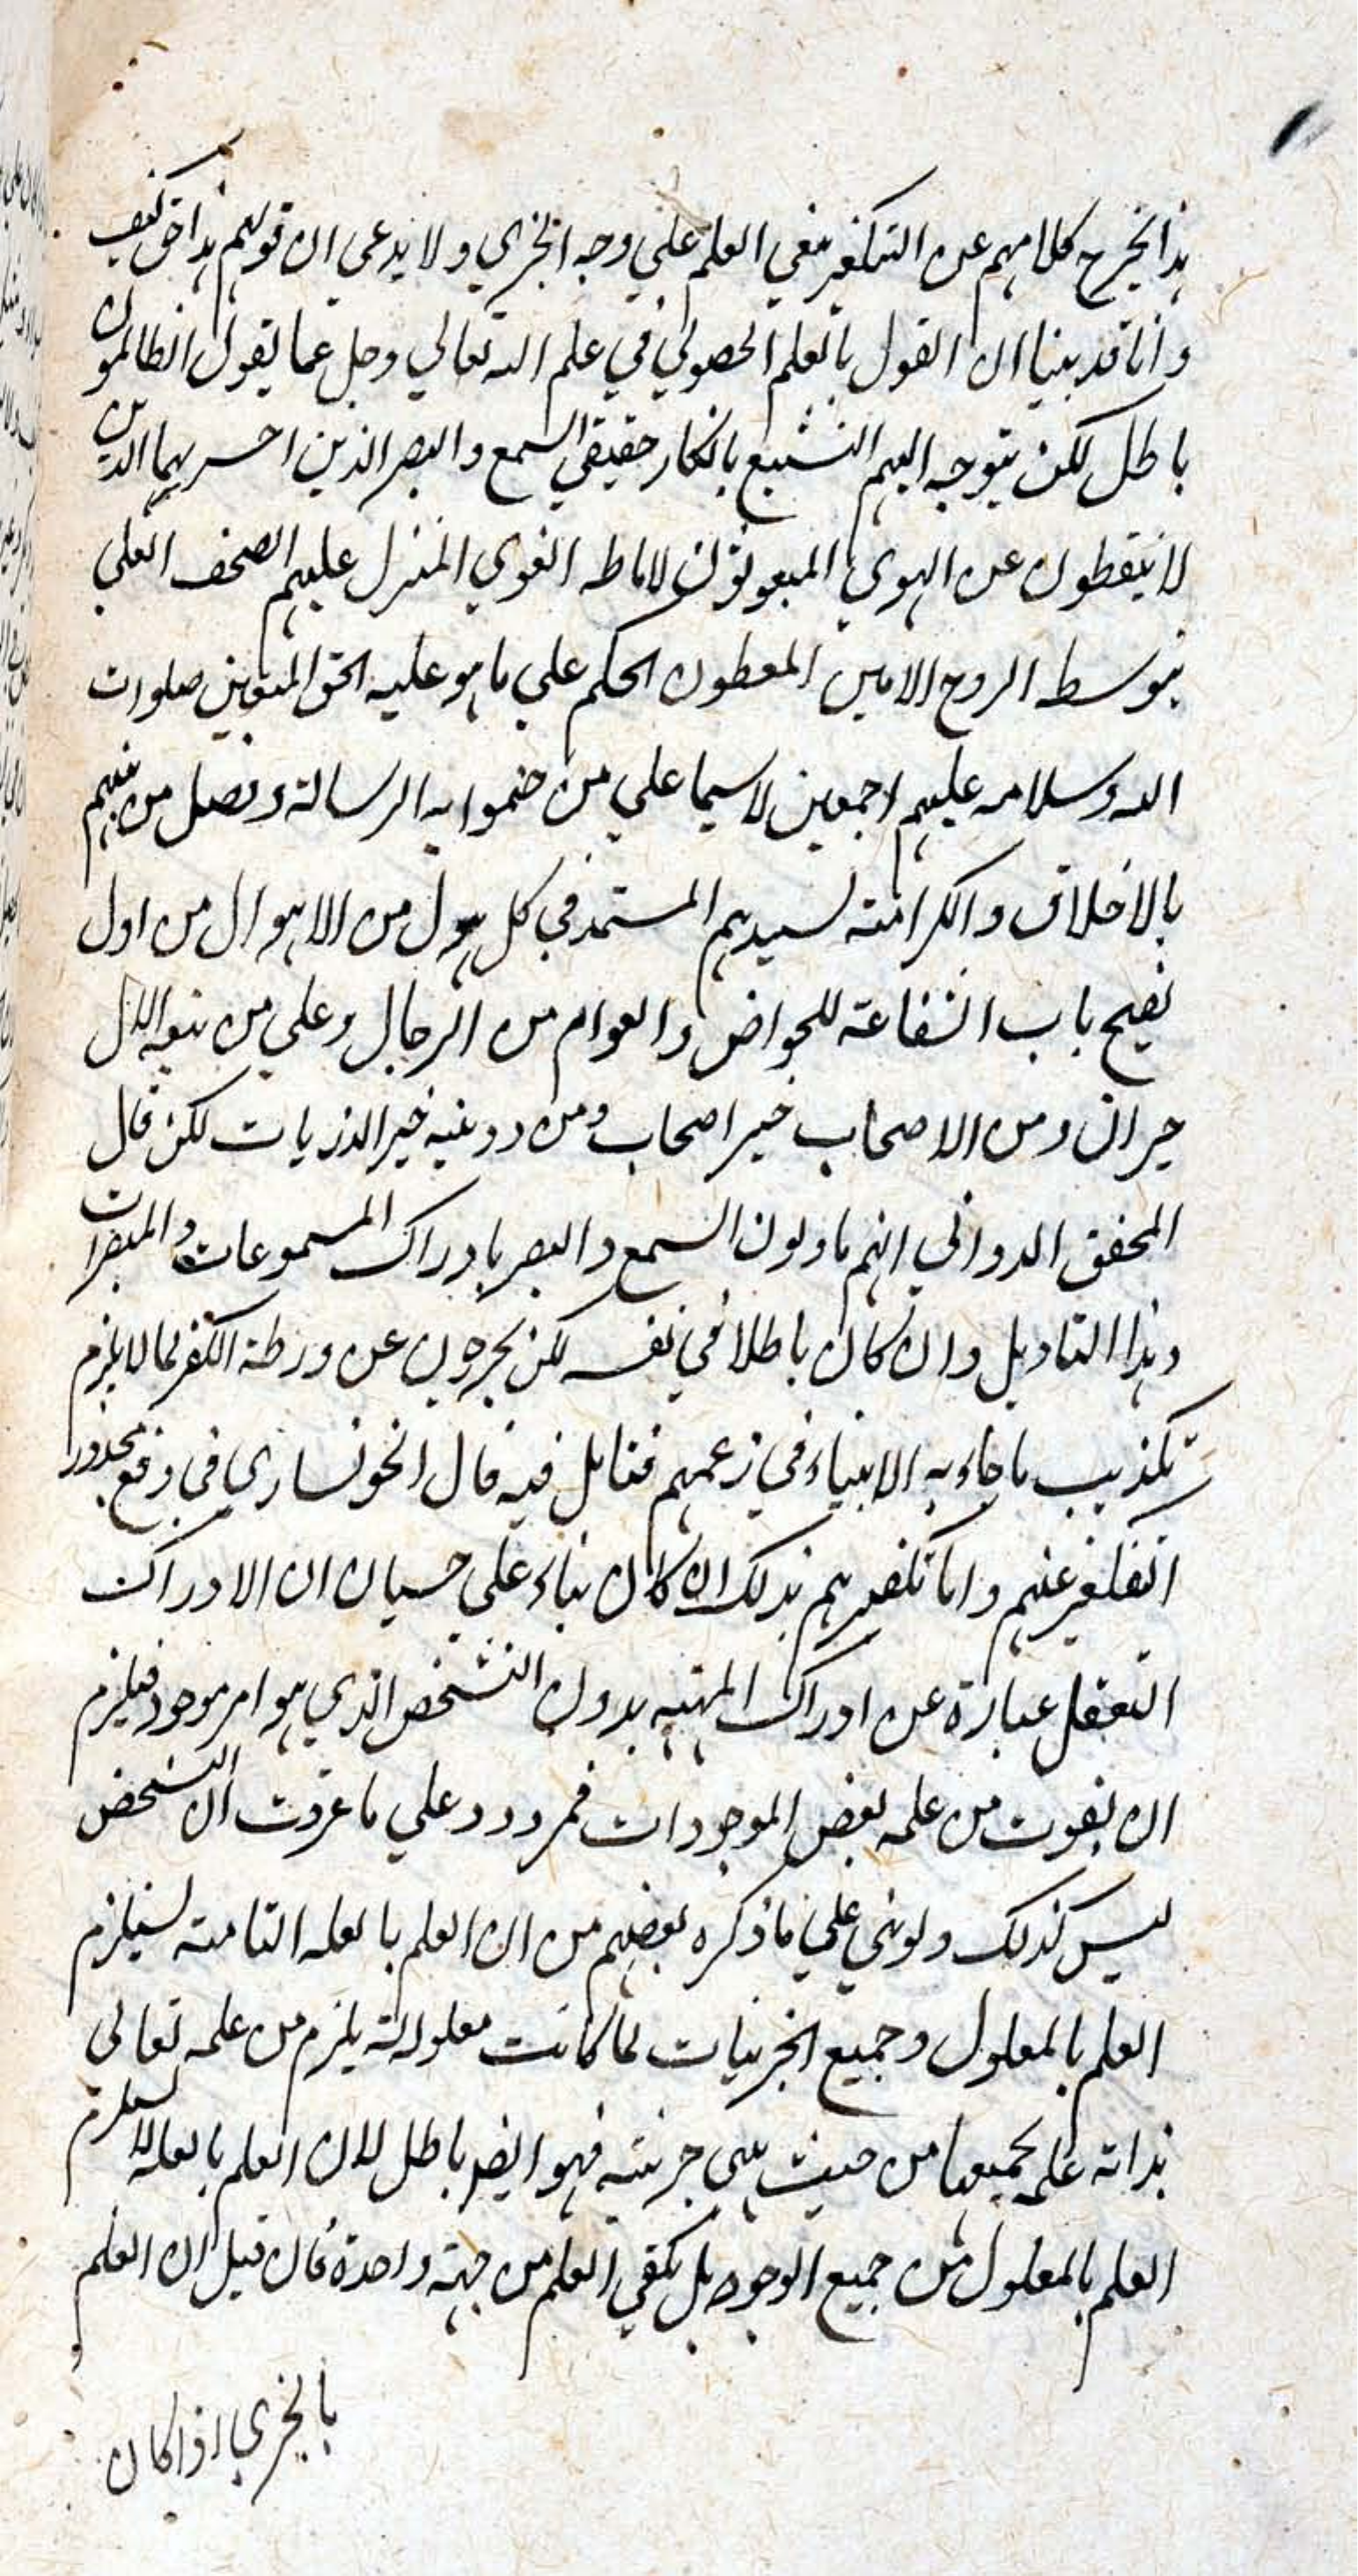 هذا يخرج كلامهم عن التكفير بنفي العلم علي وجه الجزي ولا يدعي ان قولهم هذا حق كيف
وانا قد بينا ان القول بالعلم الحصولي في علم الله تعالي وجل عما يقول الظالمون
باطل لكن يتوجه اليهم التشنيع بانكار حقيقي السمع والبصر الذين اخبر بهما الذين
لا ينقطون عن الهوي المبعوثون لاماطه الغوي المنزل عليهم الصحف العلي
بتوسط الروح الامين المعطون الحكم علي ما هو عليه الحق المتقين صلوات
الله وسلامه عليهم اجمعين لاسيما علي من ختموا به الرسالة وفضل من بينهم
بالاخلاق والكرامته لسيدهم المستمد في كل هول من الاهوال من اول
يفتح باب الشفاعة للخواص والعوام من الرجال وعلي من تبعه الال
خير ال ومن الاصحاب خير اصحاب ومن ذريته خير الذريات لكن قال
المحقق الدواني انهم ياولون السمع والبصر بادراك المسموعات والمبصرات
وهذا التاويل وان كان باطلا في نفسه لكن يخرجون عن ورطة الكفر لما لا يلزم
تكذيب ما جاء به الانبياء في زعمهم فتامل فيه قال الخونساري في دفع محذور
التكفير عنهم واما تكفيرهم بذلك ان كان بناء علي حسبان ان الادراك
التعقل عبارة عن ادراك المهيه بدون التشخص الذي هو امر موجود فيلزم
ان يفوت من علمه بعض الموجودات فمردود علي ما عرفت ان التشخص
ليس كذلك ولو بني علي ما ذكره بعضهم من ان العلم بالعله التامته يستلزم
العلم بالمعلول وجميع الجزئيات لما كانت معلولة له يلزم من علمه تعالي
بذاته علمه بجميعها من حيث هي جزئية فهو ايضا باطل لان العلم بالعله لا يستلزم
العلم بالمعلول من جميع الوجوه بل يكفي العلم من جهته واحدة فان قيل ان العلم
بالجزي اذا كان